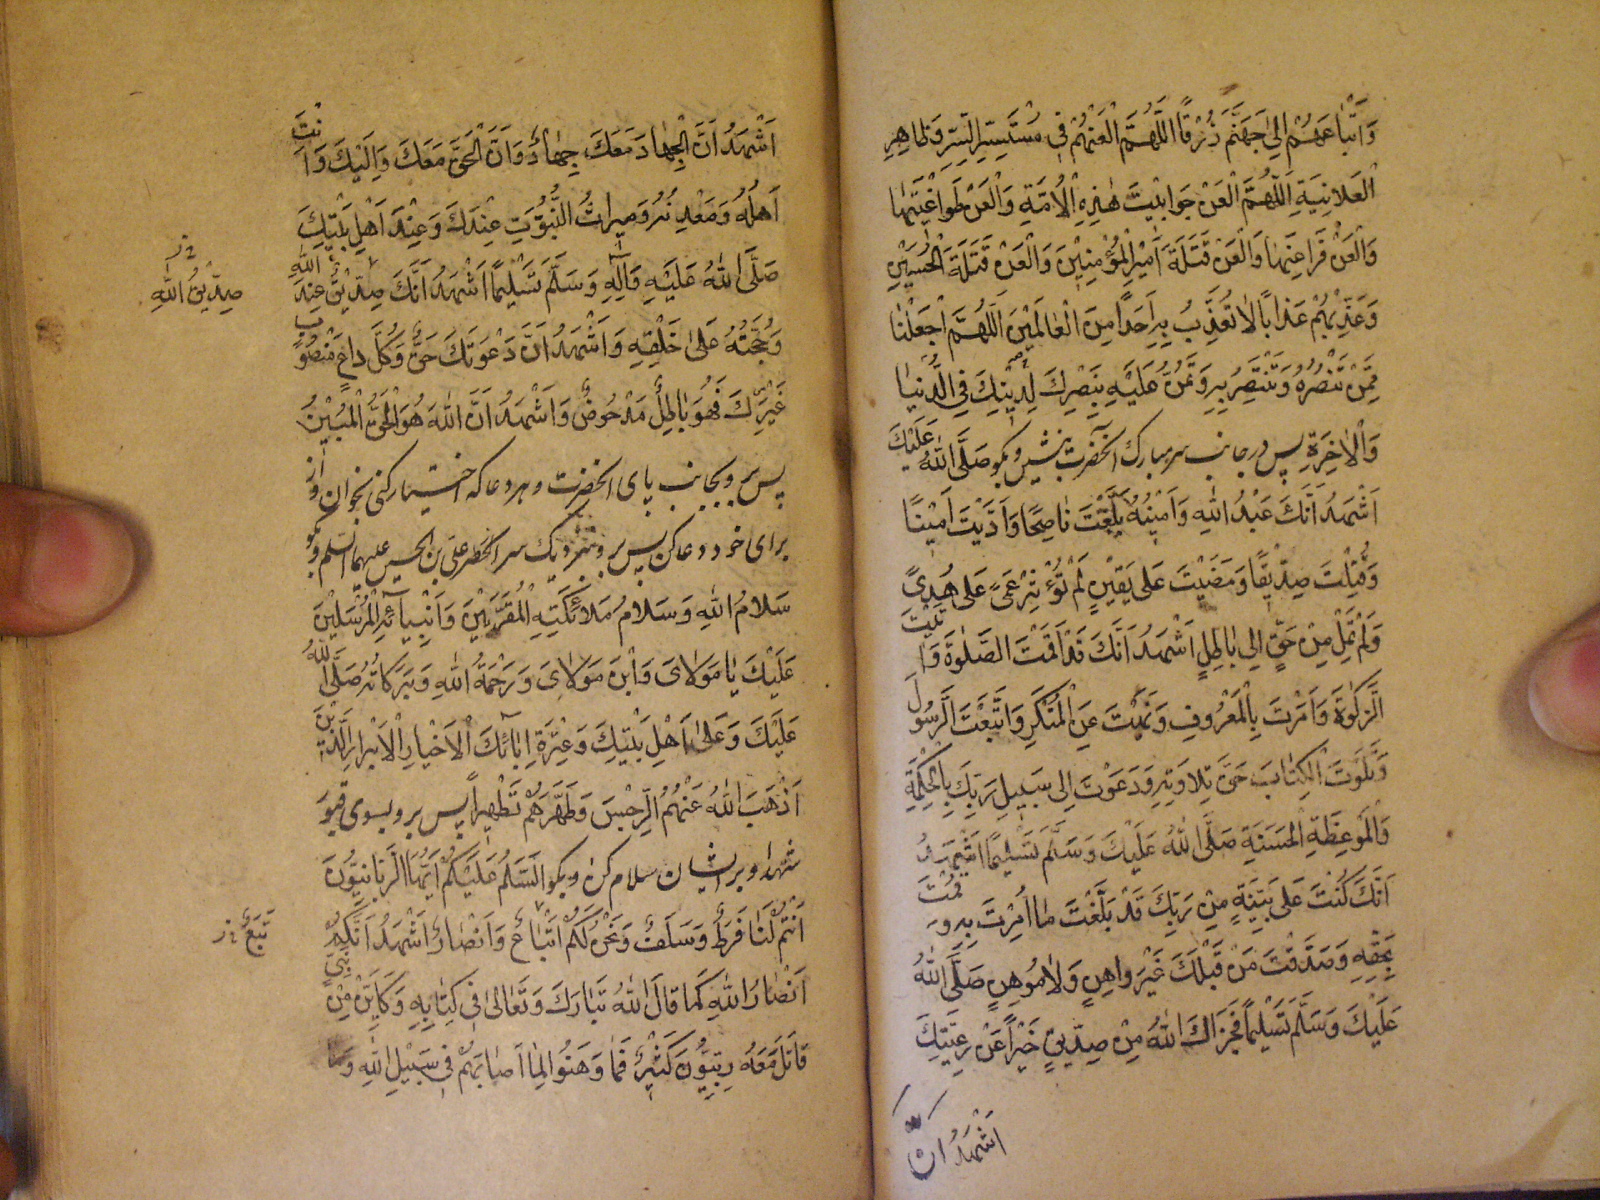 وَاَتْباعَهُمْ اِلىٰ جَهَنَّمَ زُرْقًا اَللّهُمَّ الْعَنْهُمْ فى مُسْتَسِرِّ السِّرِّ وَظاهِرِ
الْعَلانِيَةِ اَللّهُمَّ الْعَنْ جَوابيتَ هٰذِهِ الْاُمَّةِ وَالْعَنْ طَواغيتَها
وَالْعَنْ فَراعِنَتَها وَالْعَنْ قَتَلَةَ اَميرِالْمُؤْمِنينَ وَالْعَنْ قَتَلَةَ الْحُسَيْنِ
وَعَذِّبْهُمْ عَذابًا لاتُعَذِّبُ بِهِ اَحَدًا مِنَ الْعالَمينَ اَللّهُمَّ اجْعَلْنا
مِمَّنْ تَنْصُرُهُ وَتَنْتَصِرُ بِهِ وَتَمُنُّ عَلَيْهِ بِنَصْرِكَ لِدينِكَ فِى الدُّنْيا
وَالْاٰخِرَةِ پس در جانب سر مبارك آنحضرت بنشين وبگو صَلَّى اللّٰهُ عَلَيْكَ
اَشْهَدُ اَنَّكَ عَبْدُ اللّٰهِ وَاَمينُهُ بَلَّغْتَ ناصِحًا وَاَدَّيْتَ اَمينًا
وَقُتِلْتَ صِدّيقًا وَمَضَيْتَ عَلى يَقينٍ لَمْ تُؤْثِرْ عَمًى عَلى هُدًى
وَلَمْ تَمِلْ مِنْ حَقٍّ اِلى باطِلٍ اَشْهَدُ اَنَّكَ قَدْ اَقَمْتَ الصَّلٰوةَ وَاٰتَيْتَ
الزَّكٰوةَ وَاَمَرْتَ بِالْمَعْرُوفِ وَنَهَيْتَ عَنِ الْمُنْكَرِ وَاتَّبَعْتَ الرَّسُولَ
وَتَلَوْتَ الْكِتابَ حَقَّ تِلاوَتِهِ وَدَعَوْتَ اِلى سَبيلِ رَبِّكَ بِالْحِكْمَةِ
وَالْمَوْعِظَةِ الْحَسَنَةِ صَلَّى اللّٰهُ عَلَيْكَ وَسَلَّمَ تَسْليمًا اَشْهَدُ
اَنَّكَ كُنْتَ عَلى بَيِّنَةٍ مِنْ رَبِّكَ قَدْ بَلَّغْتَ ما اُمِرْتَ بِهِ وَقُمْتَ
بِحَقِّهِ وَصَدَّقْتَ مَنْ قَبْلَكَ غَيْرَ واهِنٍ وَلامُوهِنٍ صَلَّى اللّٰهُ
عَلَيْكَ وَسَلَّمَ تَسْليمًا فَجَزاكَ اللّٰهُ مِنْ صِدّيقٍ خَيْرًا عَنْ رَعِيَّتِكَ
اَشْهَدُ اَنَّ
اَشْهَدُ اَنَّ الْجِهادَ مَعَكَ جِهادٌ وَاَنَّ الْحَقَّ مَعَكَ وَاِلَيْكَ وَاَنْتَ
اَهْلُهُ وَمَعْدِنُهُ وَميراثُ النُّبُوَّةِ عِنْدَكَ وَعِنْدَ اَهْلِ بَيْتِكَ
صَلَّى اللّٰهُ عَلَيْهِ وَاٰلِهِ وَسَلَّمَ تَسْليمًا اَشْهَدُ اَنَّكَ صِدّيقٌ عِنْدَ اللّٰهِ
صِدّيقُ اللّٰهِ
وَحُجَّتُهُ عَلىٰ خَلْقِهِ وَاَشْهَدُ اَنَّ دَعْوَتَكَ حَقٌّ وَكُلَّ داعٍ مَنْصُوبٍ
غَيْرِكَ فَهُوَ باطِلٌ مَدْحُوضٌ وَاَشْهَدُ اَنَّ اللّٰهَ هُوَ الْحَقُّ الْمُبينُ
پس برو بجانب پاى آنحضرت و هر دعا كه اختيار كنى بخوان واز
براى خود دعا كن پس برو بنزديك سر آنحضرت على بن الحسين عليهما السلم وبگو
سَلامُ اللّٰهِ وَسَلامُ مَلائِكَتِهِ الْمُقَرَّبينَ وَاَنْبِيائِهِ الْمُرْسَلينَ
عَلَيْكَ يا مَوْلاىَ وَابْنَ مَوْلاىَ وَرَحْمَةُ اللّٰهِ وَبَرَكاتُهُ صَلَّى اللّٰهُ
عَلَيْكَ وَعَلىٰ اَهْلِ بَيْتِكَ وَعِتْرَةِ اٰبائِكَ الْاَخْيارِ الْاَبْرارِ الَّذينَ
اَذْهَبَ اللّٰهُ عَنْهُمُ الرِّجْسَ وَطَهَّرَهُمْ تَطْهيرًا پس برو بسوى قبور
شهدا و بر ايشان سلام كن و بگو اَلسَّلمُ عَلَيْكُمْ اَيُّهَا الرَّبّانِيُّونَ
اَنْتُمْ لَنا فَرَطٌ وَسَلَفٌ وَنَحْنُ لَكُمْ اَتْباعٌ وَاَنْصارٌ اَشْهَدُ اَنَّكُمْ
تَبَعٌ
اَنْصارُ اللّٰهِ كَما قالَ اللّٰهُ تَبارَكَ وَتَعالىٰ فى كِتابِهِ وَكَاَيِّنْ مِنْ نَبِىٍّ
قاتَلَ مَعَهُ رِبِّيُّونَ كَثيرٌ فَما وَهَنُوا لِما اَصابَهُمْ فى سَبيلِ اللّٰهِ وَما